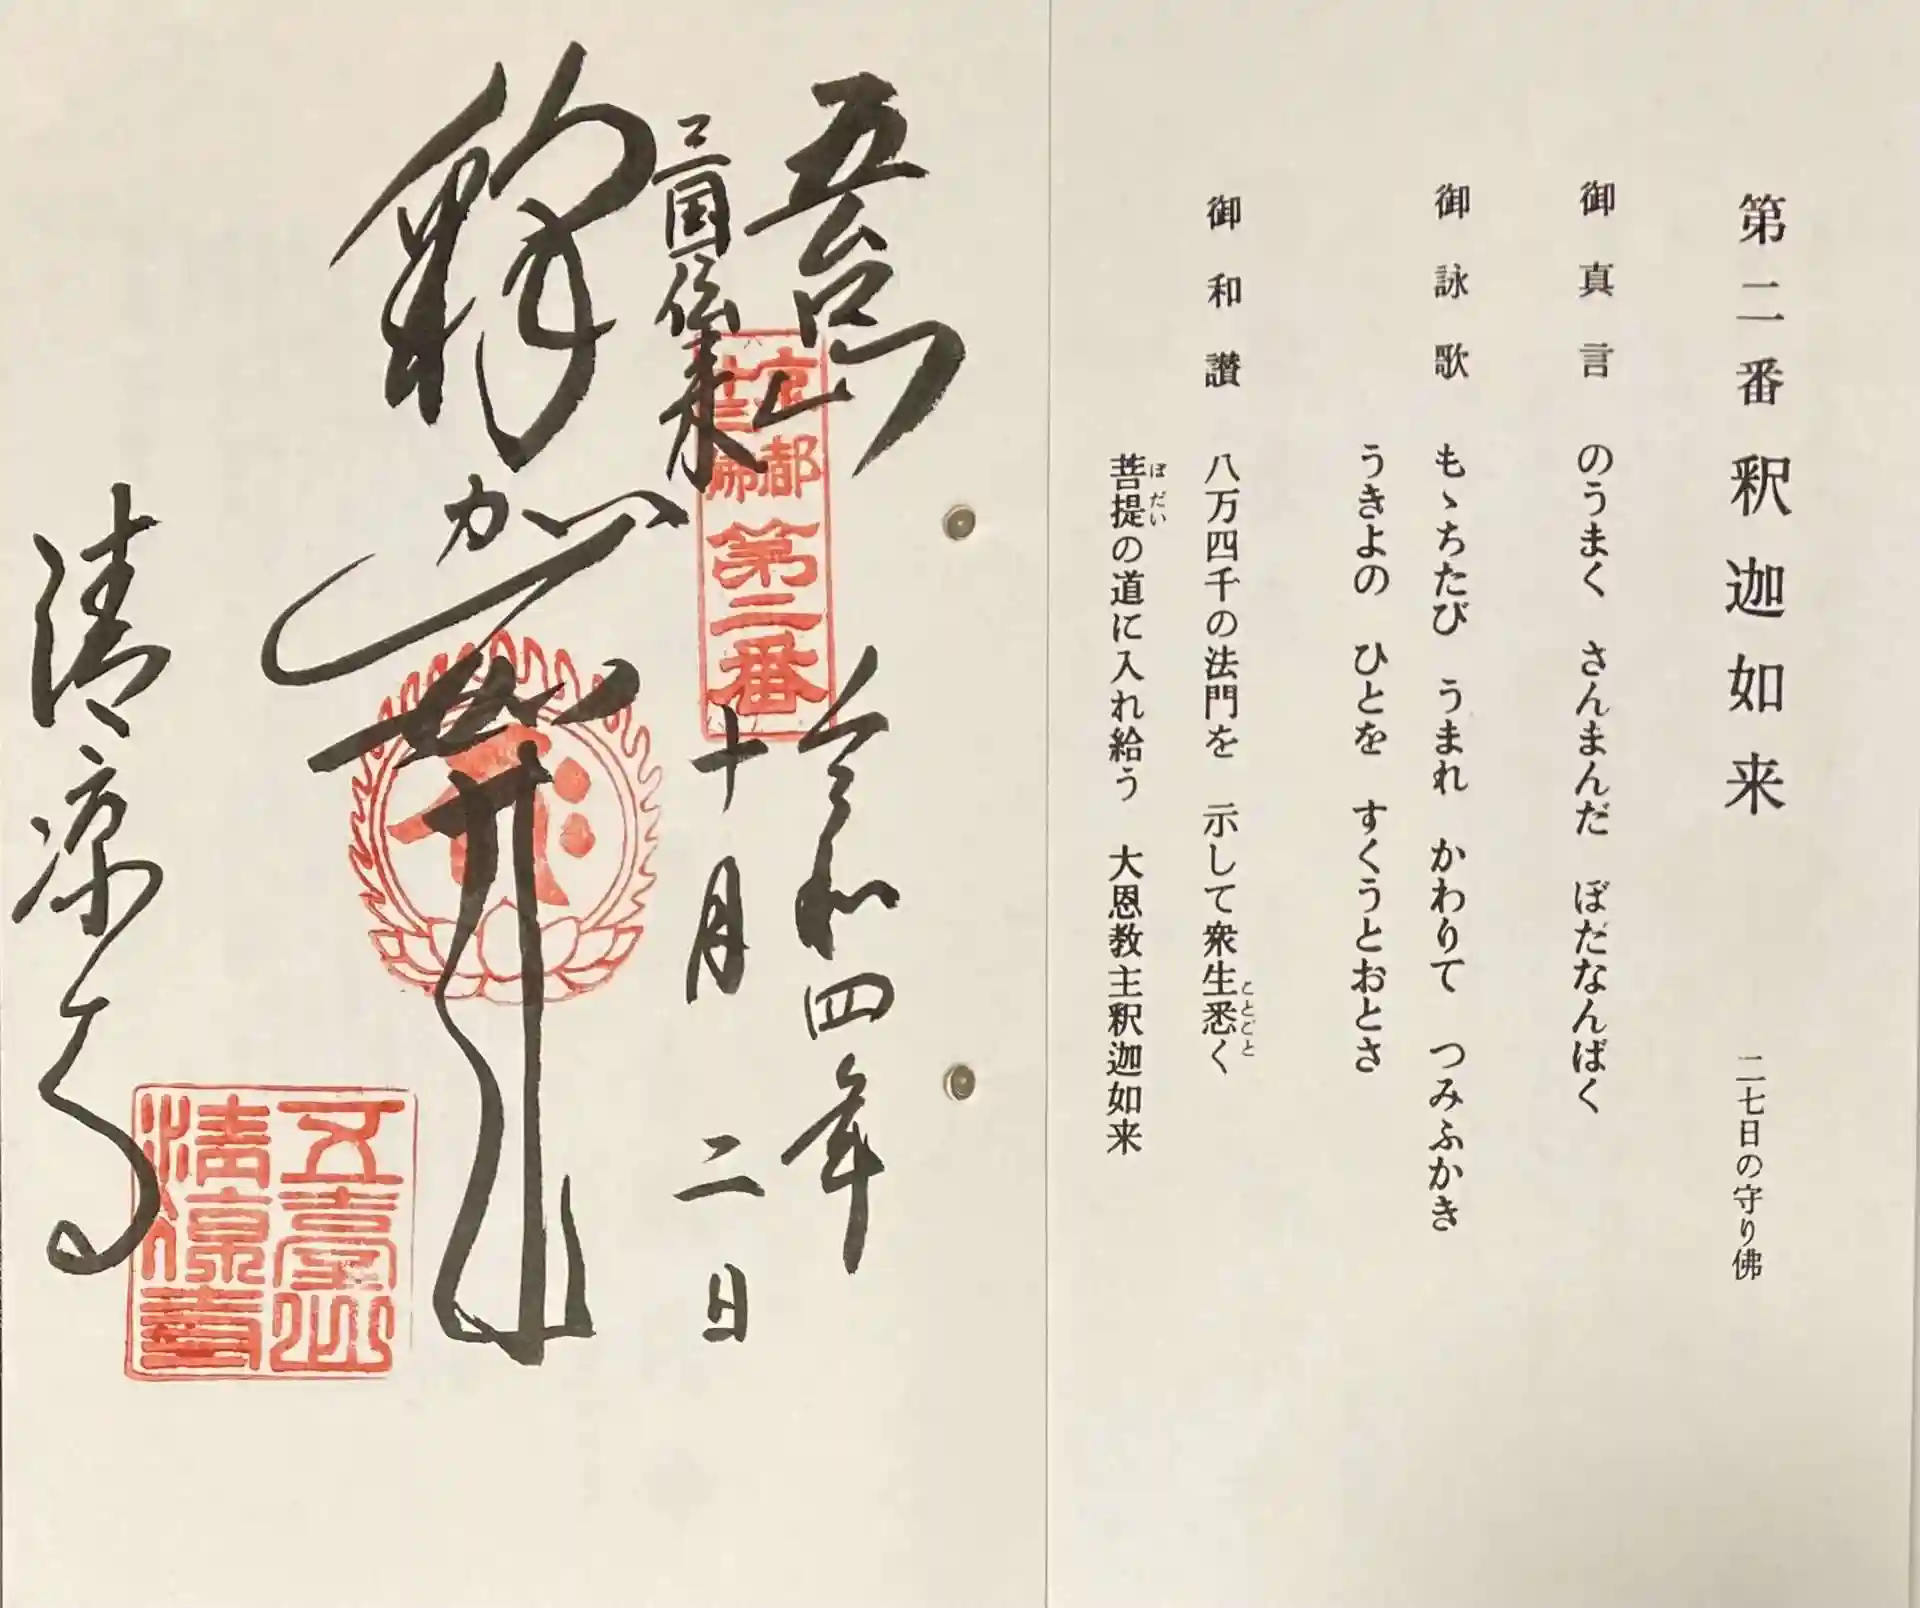 第二番 釈迦如来 二七日の守り佛
御真言 のうまく さんまんだ ぼだなんばく
御詠歌 もゝちたび うまれ かわりて つみふかき
うきよの ひとを すくうとおとさ
御和讃 八万四千の法門を 示して衆生悉く
ことごと
菩提の道に入れ給う 大恩教主釈迦如来
ぼだい
五台山
令和四年
三国伝来
十月二日
京都
十三佛
第二番
釋迦如来
清凉寺
五臺山
清凉寺